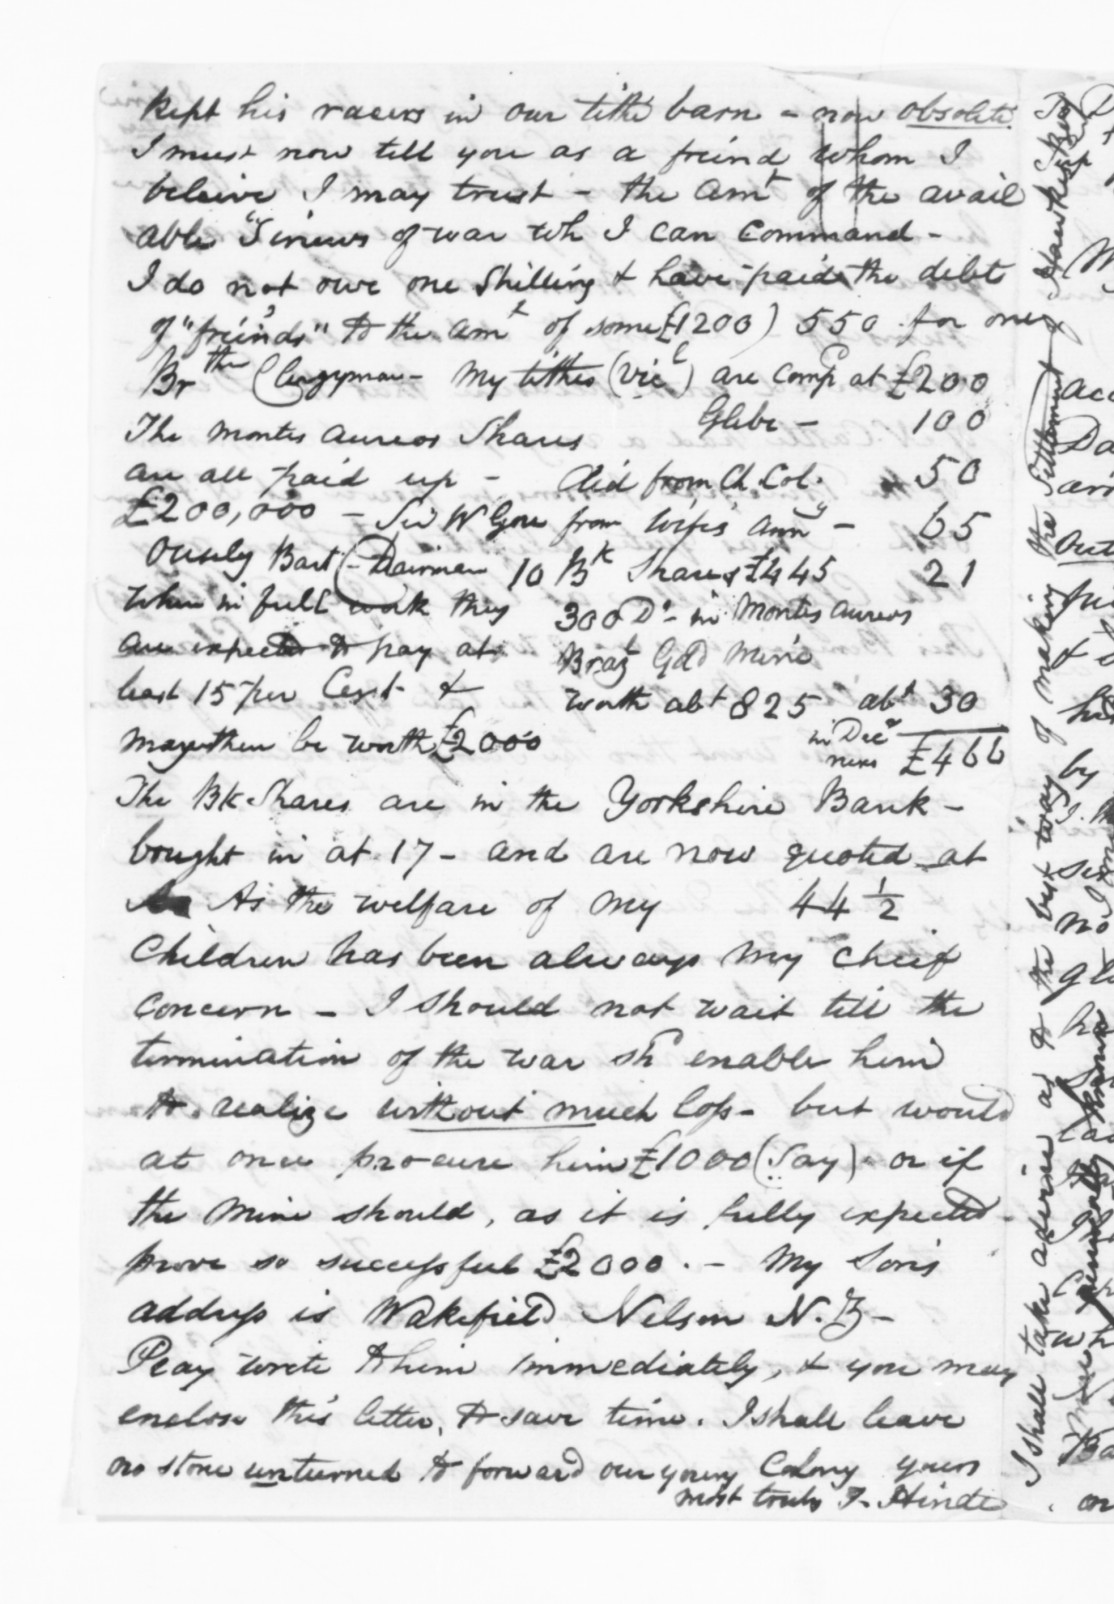 kept his racers in our tithe barn - now obsolete.
I must now tell you as a freind whom I
beleive I may trust - the amt of the avail
able "Sinews of war wh I can command -
I do not owe one Shilling & have paid the debts
of "freinds" to the amt of some £1200) 550 for one
Brther Clergyman - My tithes (Vicl) are comp at £200
Glebe - 100
The Montes Aureos Shares
are all paid up - Aid from Ch. Col. 50
£200,000 - Sir W Gore from Wife's anny - 65
Ously Bart (- Chairman 10 Bk Shares £445 21
When in full work they 300 Do - in Montes Aureos
are expected to pay at Brazl Gold Mine
least 15 per Cent & worth abt 825 abt 30
may then be worth £2000 in Decr next £466
The Bk Shares are in the Yorkshire Bank -
bought in at 17 - and are now quoted at
As the welfare of my 44 1/2
Children has been always my cheif
concern - I should not wait till the
termination of the war shd enable him
to realize without much loss - but would
at once procure him £1000 (Say) - or if
the Mine should, as it is fully expected -
prove so successful £2000. - My Son's
address is Wakefield Nelson N.Z -
Pray write to him immediately, & you may
enclose this letter, to save time. I shall leave
no stone unturned to forward our young Colony yours
most truly T. Hinde
I shall take advice as to the best way of making the Settlement